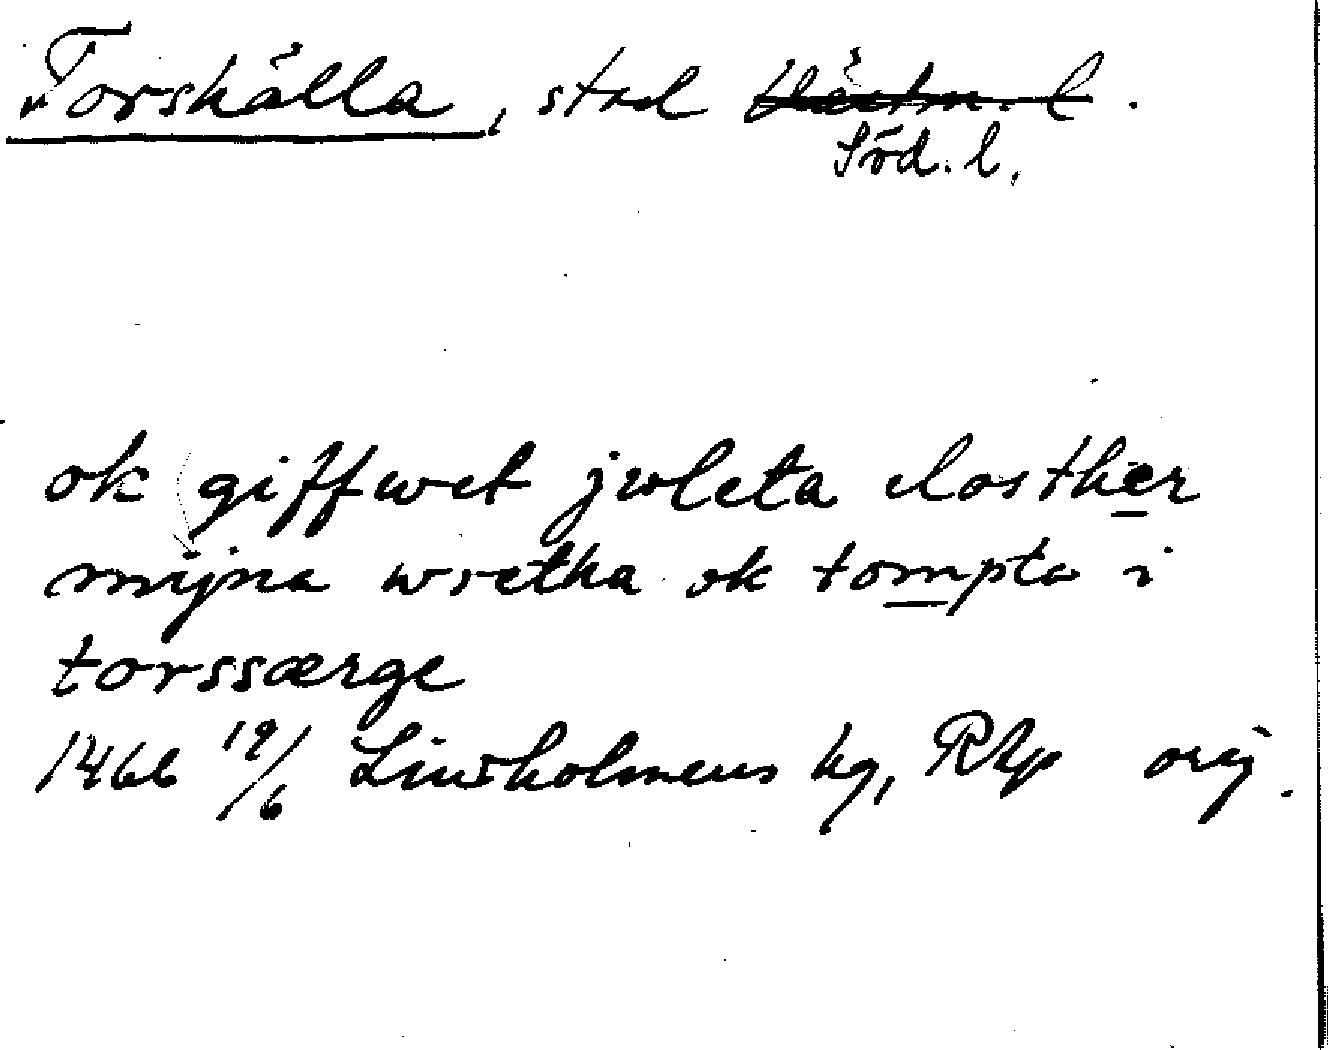 Torshälla, stad Västm. l.
Söd. l.
ok giffwet jwleta closther
mijna wretha ok tompta i
torssærge
1466 19/6 Linsholmens kg, RAp orig.